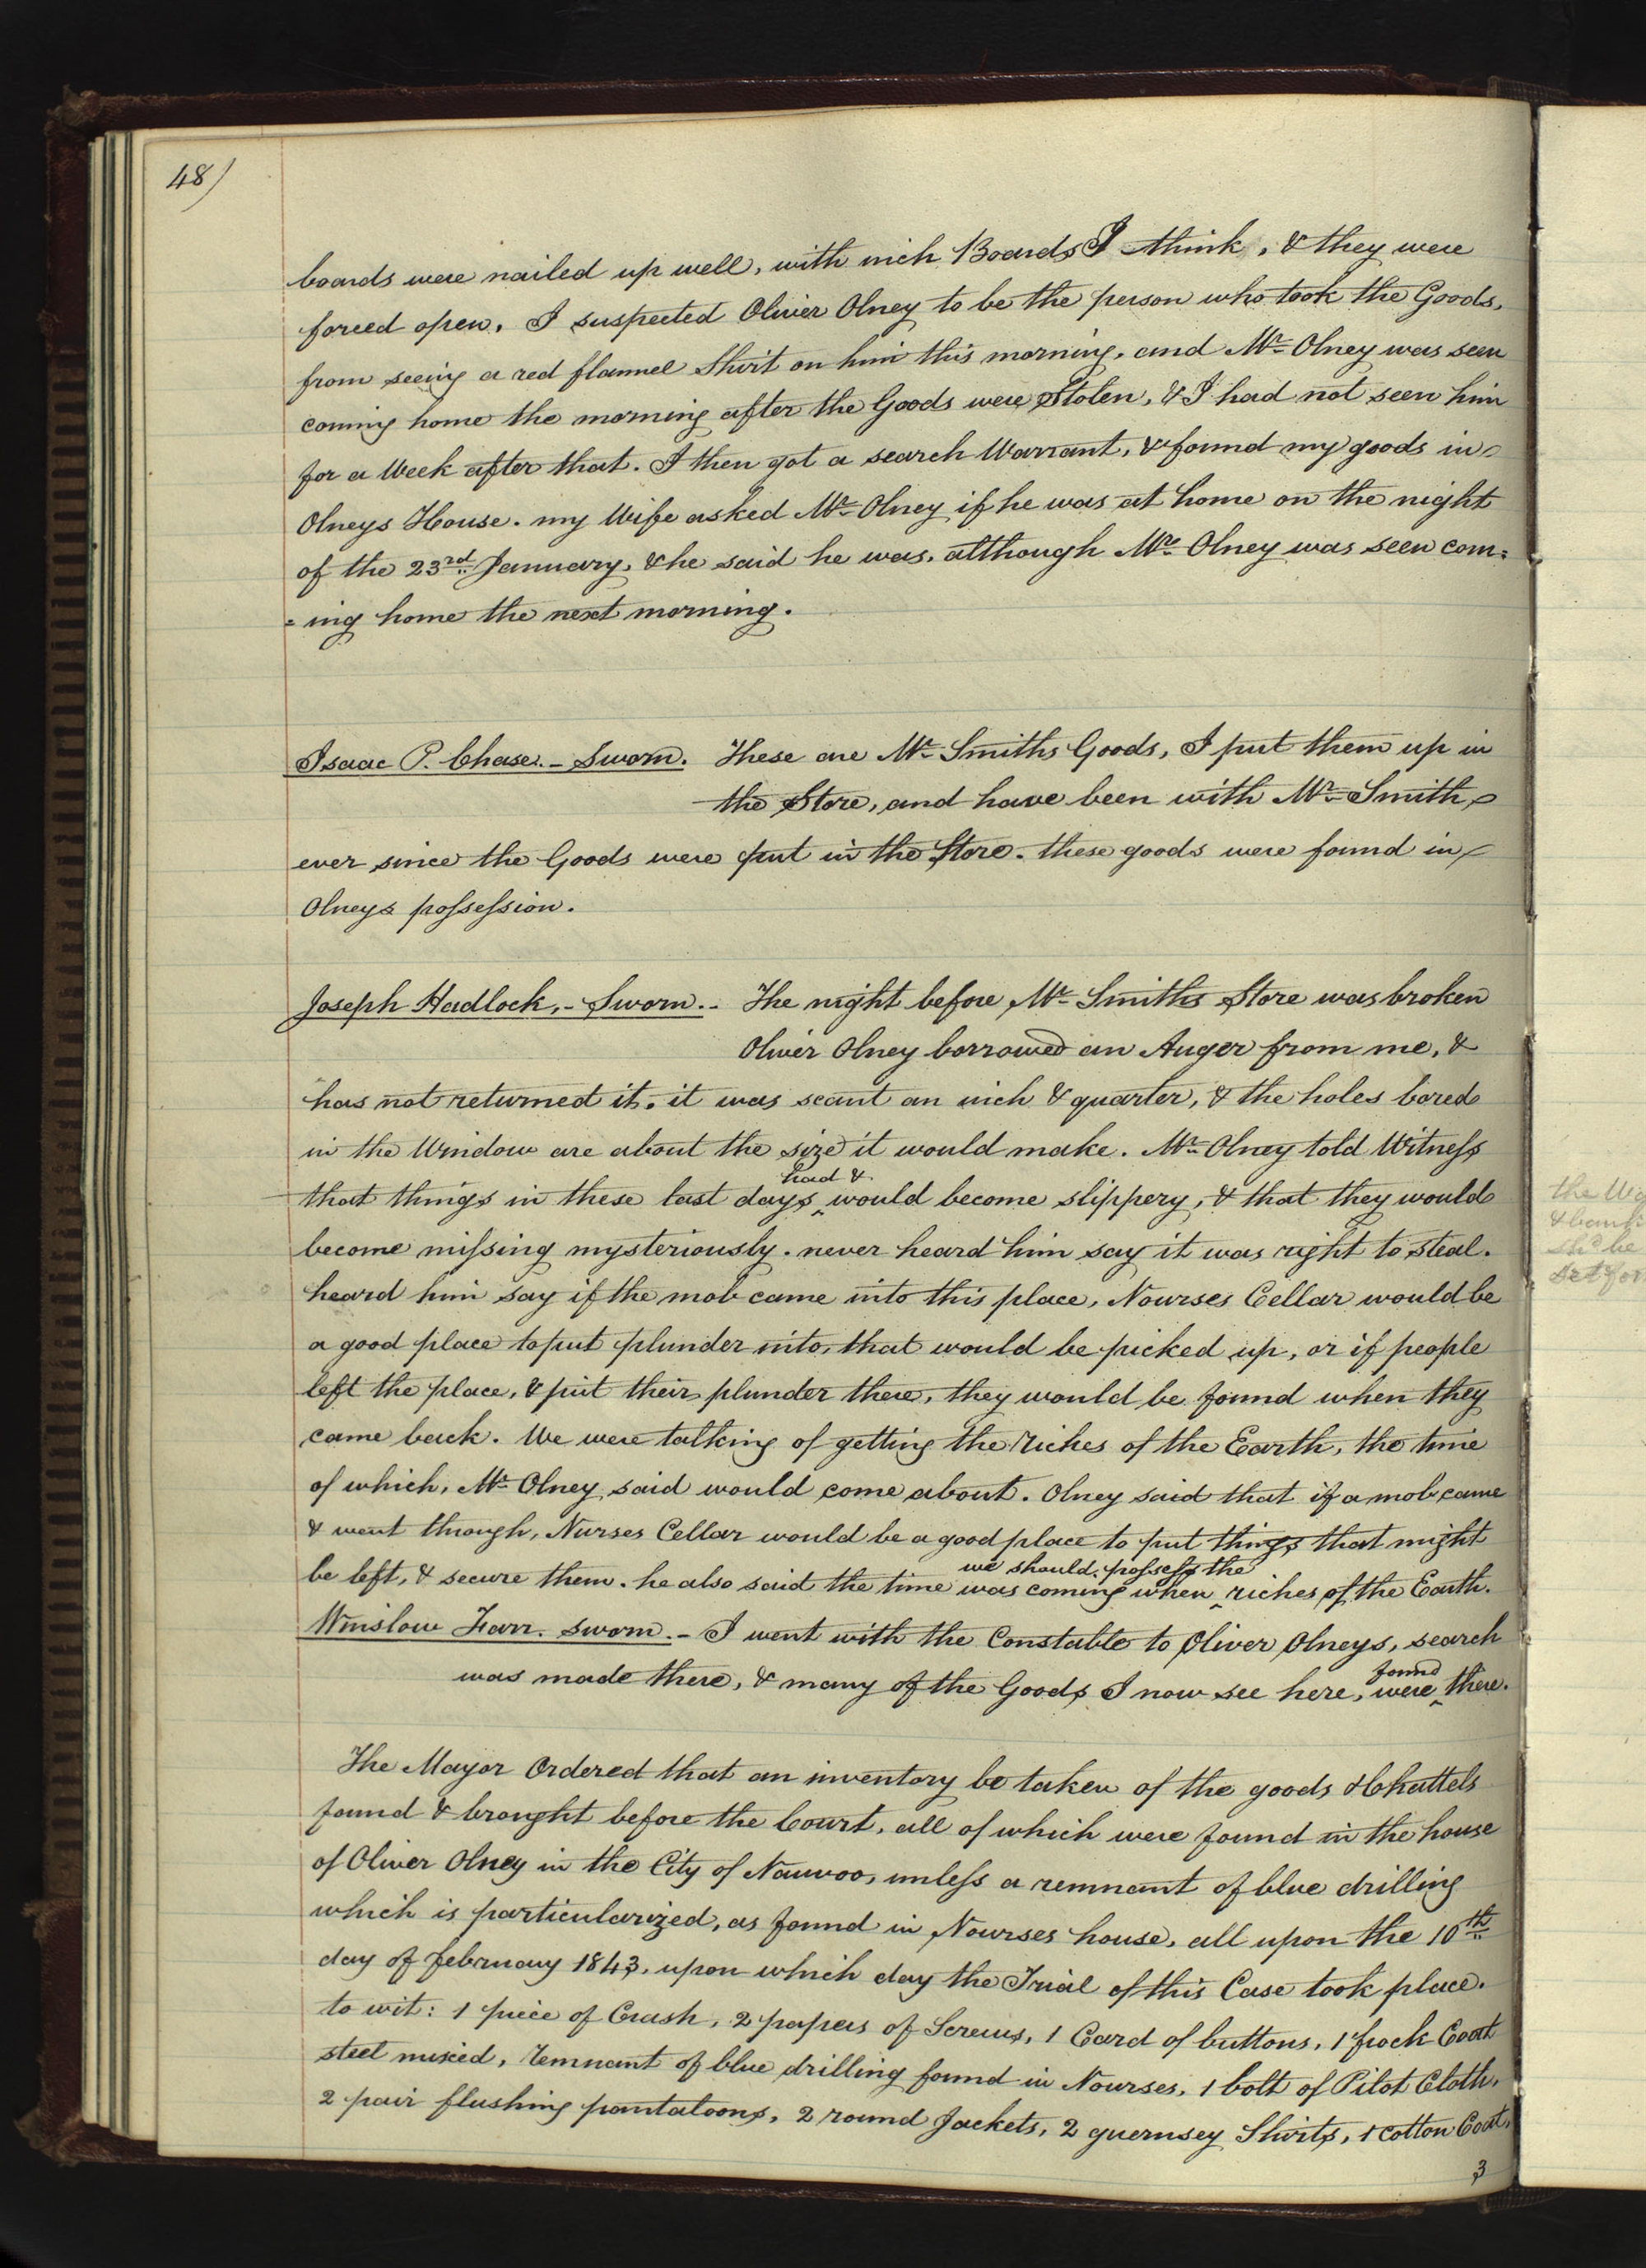 48)
boards were nailed up well, with inch Boards I think, & they were
forced open. I suspected Oliver Olney to be the person who took the Goods,
from seeing a red flannel Shirt on him this morning, and Mr. Olney was seen
coming home the morning after the Goods were Stolen, & I had not seen him
for a Week after that. I then got a search Warrant, & found my goods in
Olneys House. my Wife asked Mr. Olney if he was at home on the night
of the 23rd. January, & he said he was, although Mr. Olney was seen com=
=ing home the next morning.
Isaac P. Chase. - Sworn. These are Mr. Smiths Goods, I put them up in
the Store, and have been with Mr. Smith
ever since the Goods were put in the Store. these goods were found in
Olneys possession.
Joseph Hadlock, - Sworn. - The night before Mr. Smiths Store was broken
Oliver Olney borrowed an Auger from me, &
has not returned it. it was scant an inch & quarter, & the holes bored
in the Window are about the size it would make. Mr. Olney told Witness
had &
that things in these last days ‸ would become slippery, & that they would
become missing mysteriously. never heard him say it was right to steal.
heard him say if the mob came into this place, Nourses Cellar would be
a good place to put plunder into, that would be picked up, or if people
left the place, & put their plunder there, they would be found when they
came back. We were talking of getting the riches of the Earth, the time
of which, Mr. Olney said would come about. Olney said that if a mob came
& went through, Nurses Cellar would be a good place to put things that might
we should possess the
be left, & secure them. he also said the time was coming when ‸ riches of the Earth.
Winslow Farr. sworn. - I went with the Constable to Oliver Olneys, search
found
was made there, & many of the Goods I now see here, were ‸ there.
The Mayor Ordered that an inventory be taken of the goods & Chattels
found & brought before the Court, all of which were found in the house
of Oliver Olney in the City of Nauvoo, unless a remnant of blue drilling
which is particularized, as found in Nourses house, all upon the 10th.
day of february 1843, upon which day the Trial of this Case took place.
to wit: 1 piece of Crash, 2 papers of Screws, 1 Card of buttons, 1 frock Coat
steel mixed, remnant of blue drilling found in Nourses, 1 bolt of Pilot Cloth,
2 pair flushing pantaloons, 2 round Jackets, 2 guernsey Shirts, 1 cotton Coat,
3